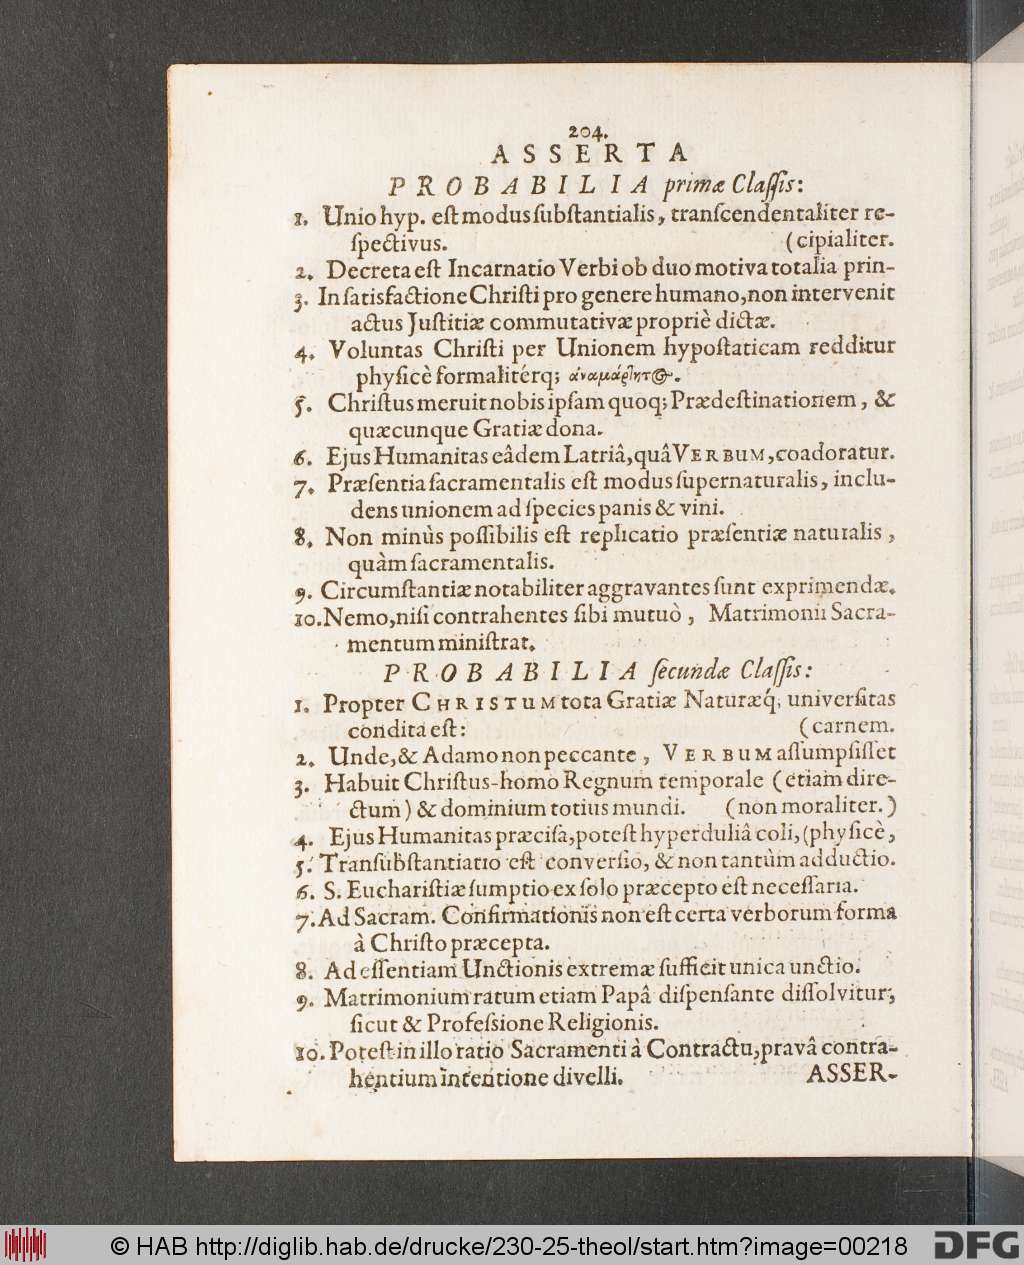 204.
ASSERTA
PROBABILIA primæ Claſſis:
1. Unio hyp. eſt modus ſubſtantialis, tranſcendentaliter re-
ſpectivus. (cipialiter.
2. Decreta eſt Incarnatio Verbi ob duo motiva totalia prin-
3. In ſatisfactione Chriſti pro genere humano, non intervenit
actus Juſtitiæ commutativæ propriè dictæ.
4. Voluntas Chriſti per Unionem hypoſtaticam redditur
phyſicè formalitérq;
5. Chriſtus meruit nobis ipſam quoq; Prædeſtinationem, &
quæcunque Gratiæ dona.
6. Ejus Humanitas eâdem Latriâ, quâ VERBUM, coadoratur.
7. Præſentia ſacramentalis eſt modus ſupernaturalis, inclu-
dens unionem ad ſpecies panis & vini.
8. Non minùs poſſibilis eſt replicatio præſentiæ naturalis,
quàm ſacramentalis.
9. Circumſtantiæ notabiliter aggravantes ſunt exprimendæ.
10. Nemo, niſi contrahentes ſibi mutuò, Matrimonii Sacra-
mentum miniſtrat.
PROBABILIA ſecundæ Claſſis:
1. Propter CHRISTUM tota Gratiæ Naturæq́; univerſitas
condita eſt: (carnem.
2. Unde, & Adamo non peccante, VERBUM aſſumpſiſſet
3. Habuit Chriſtus-homo Regnum temporale (etiam dire-
ctum) & dominium totius mundi. (non moraliter.)
4. Ejus Humanitas præciſa, poteſt hyperduliâ coli, (phyſicè,
5. Tranſubſtantiatio eſt converſio, & non tantùm adductio.
6. S. Euchariſtiæ ſumptio ex ſolo præcepto eſt neceſſaria.
7. Ad Sacram. Confirmationis non eſt certa verborum forma
à Chriſto præcepta.
8. Ad eſſentiam Unctionis extremæ ſufficit unica unctio.
9. Matrimonium ratum etiam Papâ diſpenſante diſſolvitur,
ſicut & Profeſsione Religionis.
10. Poteſt in illo ratio Sacramenti à Contractu, pravâ contra-
hentium intentione divelli. ASSER-
© HAB http://diglib.hab.de/drucke/230-25-theol/start.htm?image=00218 DFG